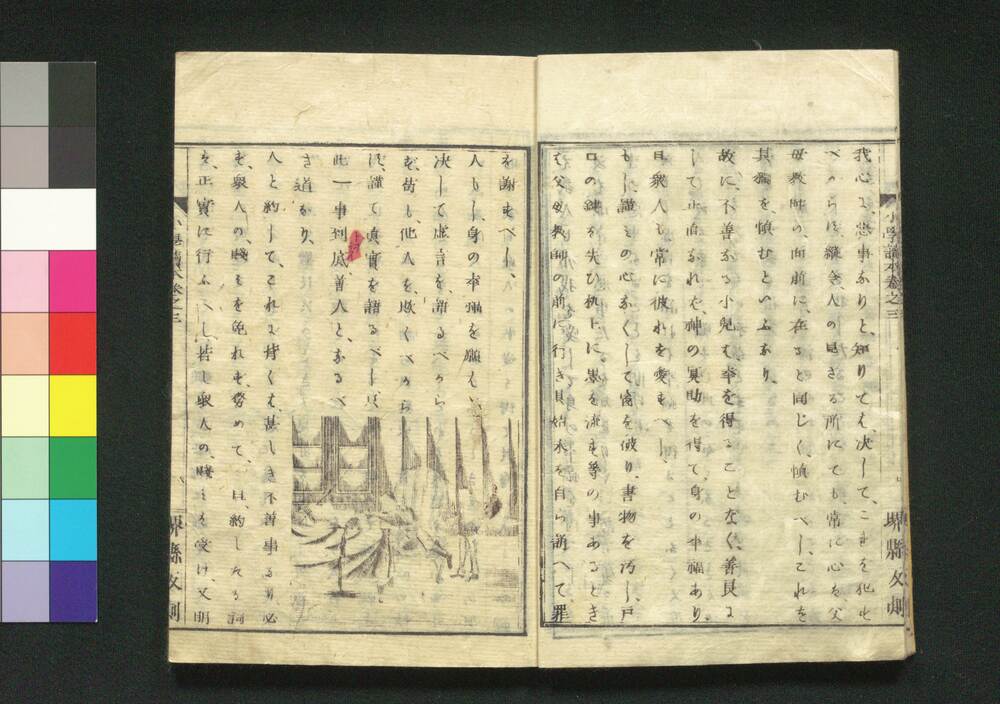 我心に、惡事なりと、知りてハ、决して、これを犯す
べからず、縱令、人の見ざる所にても、常に心を、父
母教師の、面前に、在ると同じく、愼むべし、これを
其獨を、愼むといふなり、
故に、不善なる小兒ハ、幸を得ることなく、善良に
して正直なれバ、神の冥助を得て、身の幸福あり、
且衆人も常に彼れを愛すべし、
もし識るの心なくして窓を破り、書物を汚し、戸
口の鍵を失ひ、机上に墨を流す等の事あるとき
ハ、父母教師の前に行き其始末を自ら訴へて罪
小學讀本卷之三
堺縣文刻
を謝すべし、
人もし、身の幸福を願ハヾ
决して虚言を、語るべから
ず、苟も、他人を、欺くべから
ず、謹て眞實を語るべし、
此一事到底善人と、なるべ
き道なり、
人と約して、これに背くハ、甚しき不善事なり必
ず、衆人の、賤しミを免れず、勞めて、且、約したる詞
を、正實に行ふべし、若し衆人の、賤しミを受け、又朋
小學讀本卷之三
堺縣文刻